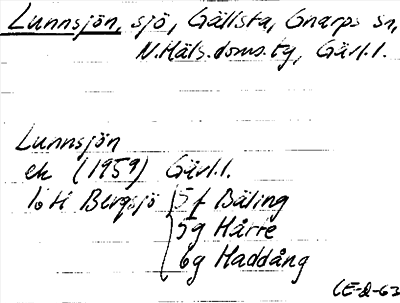 Lunnsjön, sjö, Gällsta, Gnarps sn,
N.Häls.doms.tg, Gävl.l.
Lunnsjön
ek (1959) Gävl.l.
16 H Bergsjö 5f Bäling
5g Hårre
6g Haddång
CE-2-63